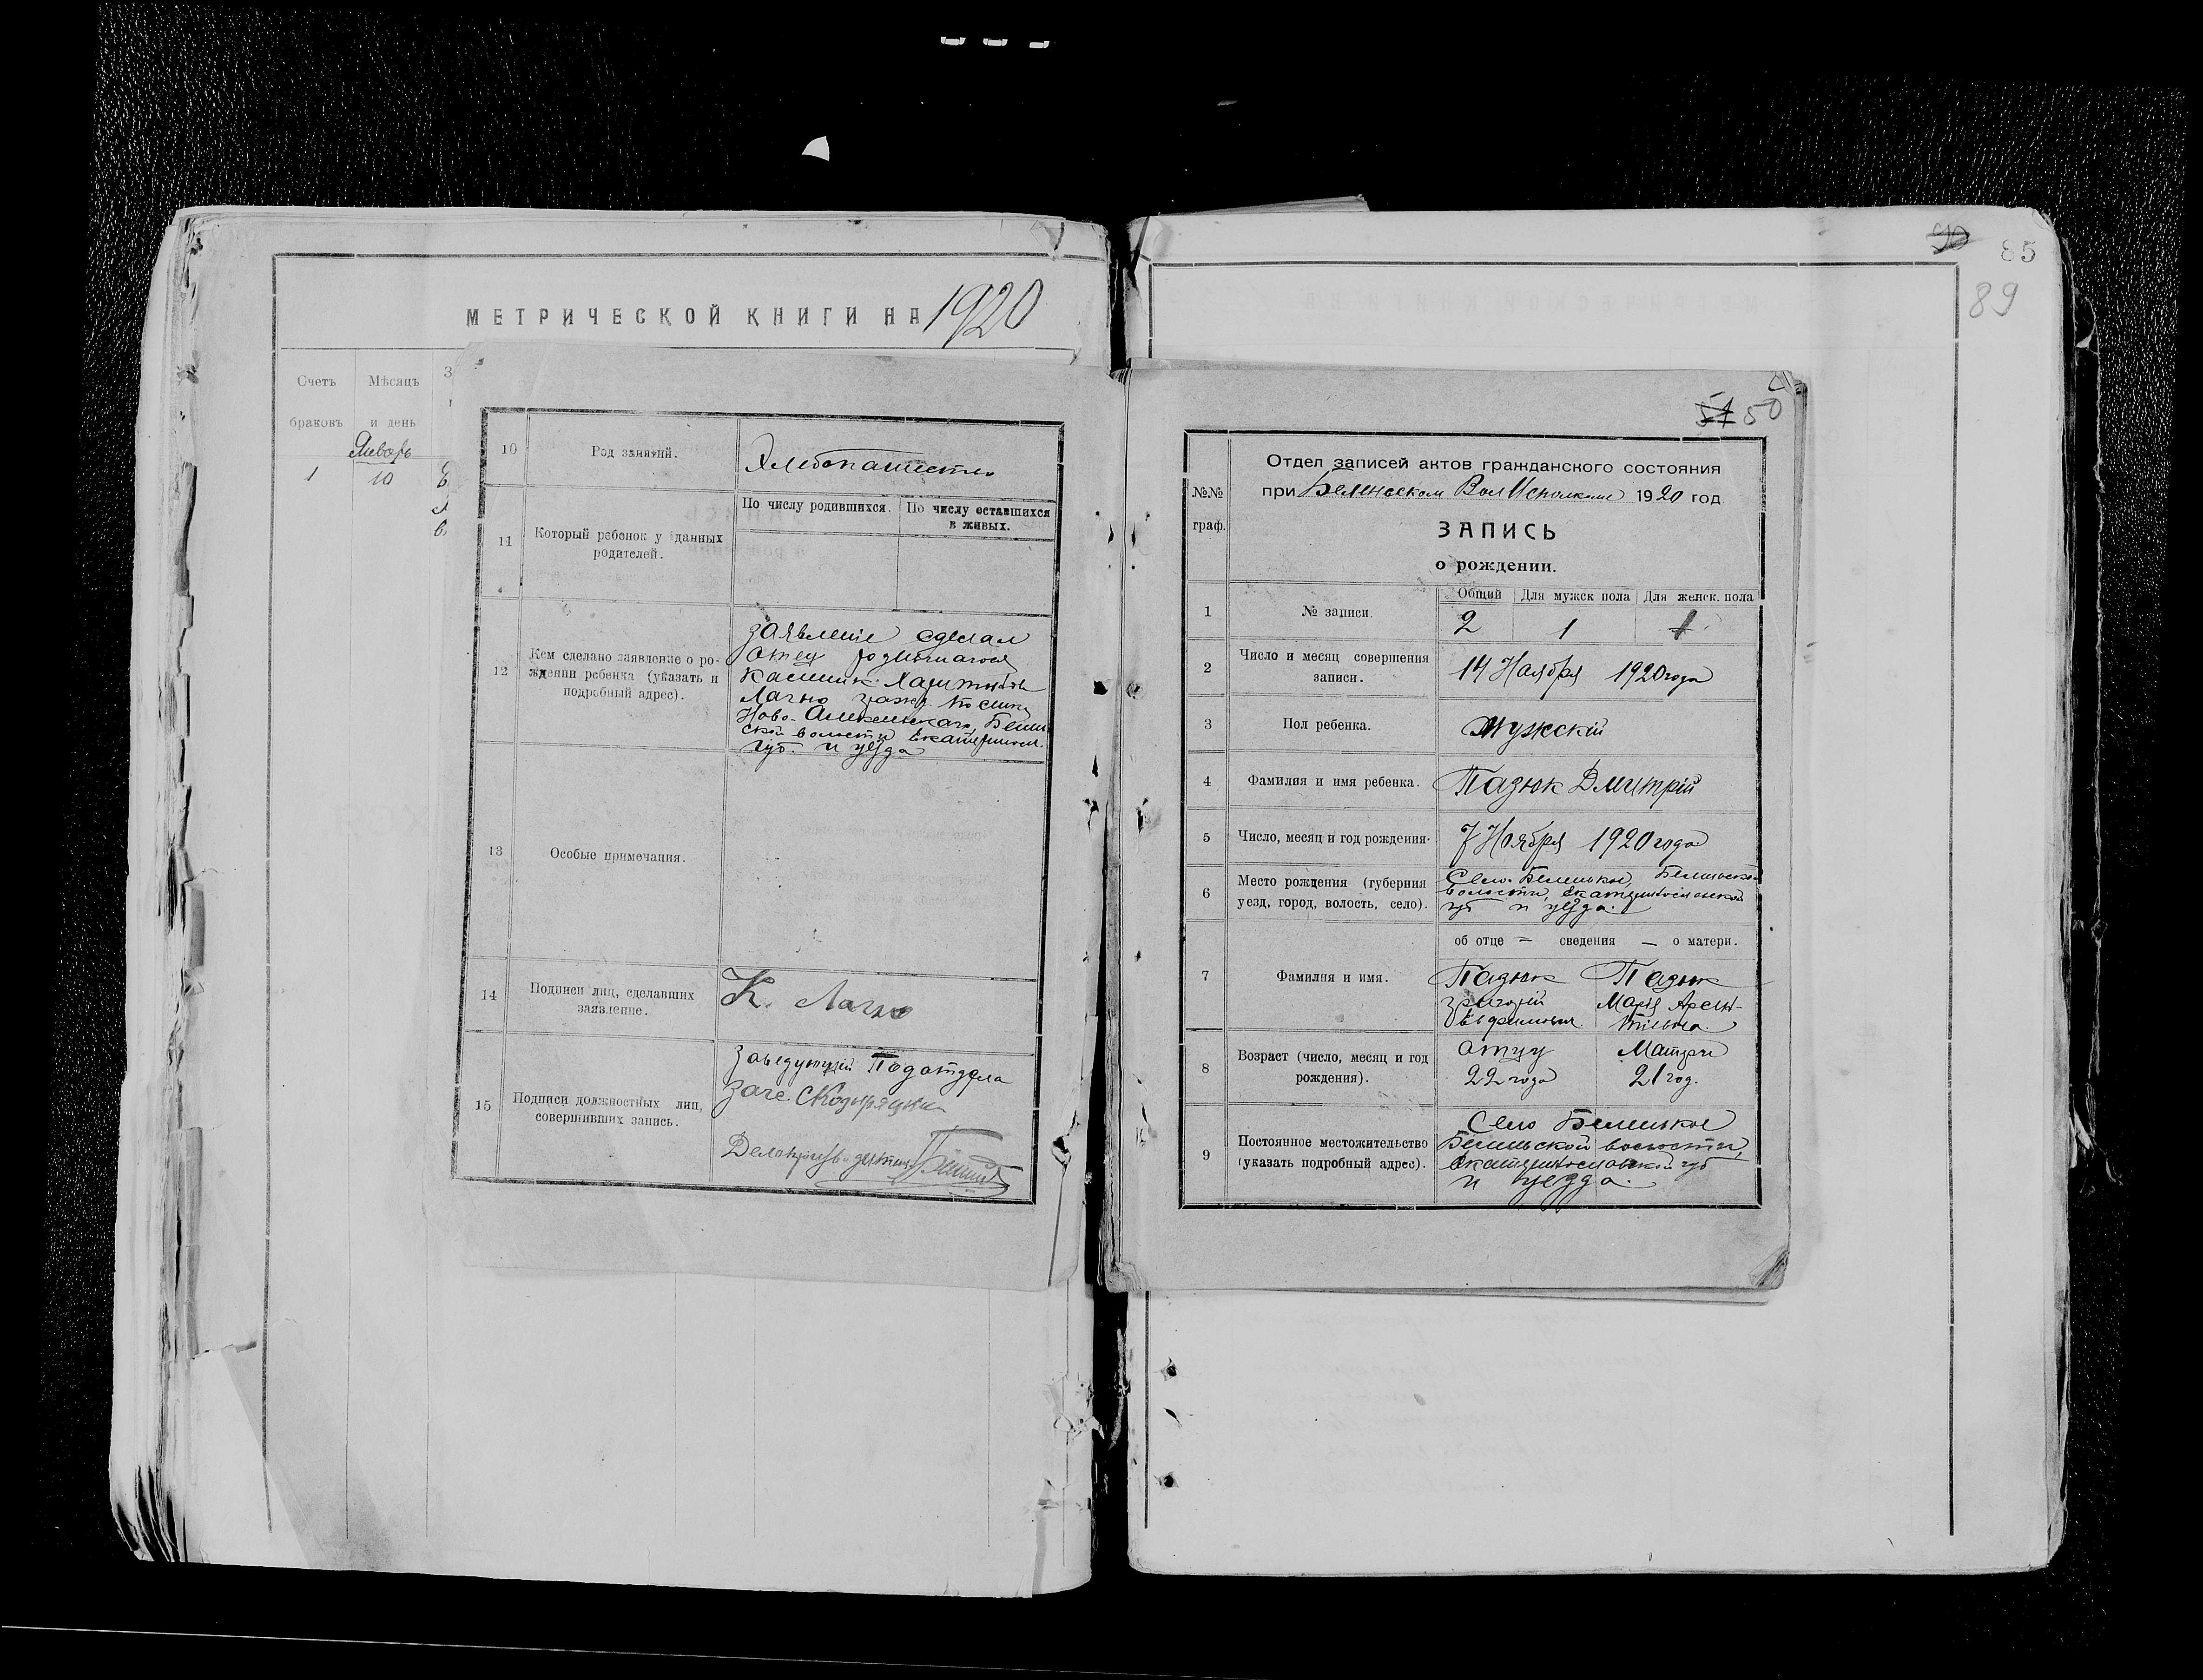 МЕТРИЧЕСКОЙ КНИГИ НА 1920
Счетъ
браковъ
Мѣсяцъ
и день
Январь
1
10
10
Род занятий.
Хлебопашество
11
Который ребенок у данных
родителей.
По числу родившихся.
По числу оставшихся
в живых.
12
Кем сделано заявление о ро-
ждении ребенка (указать и
подробный адрес).
заявленіе сделал
отец
Лагно гражд.
Ново-
ской волости
губ. и уезда
13
Особые примечания.
14
Подписи лиц, сделавших
заявление.
К. Лагно
15
Подписи должностных лиц,
совершивших запись.
Заведующій Подотдела
90
85
89
51 50
№№
граф.
Отдел записей актов гражданского состояния
при Беленском ВолИсполкоме 1920 год
ЗАПИСЬ
о рождении.
1
№ записи.
Общий
Для мужск пола
Для женск. пола
2
1
1
2
Число и месяц совершения
записи.
14 Ноября 1920 года
3
Пол ребенка.
Мужскій
4
Фамилия и имя ребенка.
Пазюк Дмитрій
5
Число, месяц и год рождения.
7 Ноября 1920 года
6
Место рождения (губерния
уезд, город, волость, село).
Село Беленькое, Беленьской
волости, Екатеринославской
губ и уезда.
об отце = сведения — о матери.
7
Фамилия и имя.
Пазюк
Пазюк
Марія
8
Возраст (число, месяц и год
рождения).
отцу
22 года
Матери
21 год.
9
Постоянное местожительство
(указать подробный адрес).
Село Беленькое
Беленьской волости,
Екатеринославской губ
и уезда.